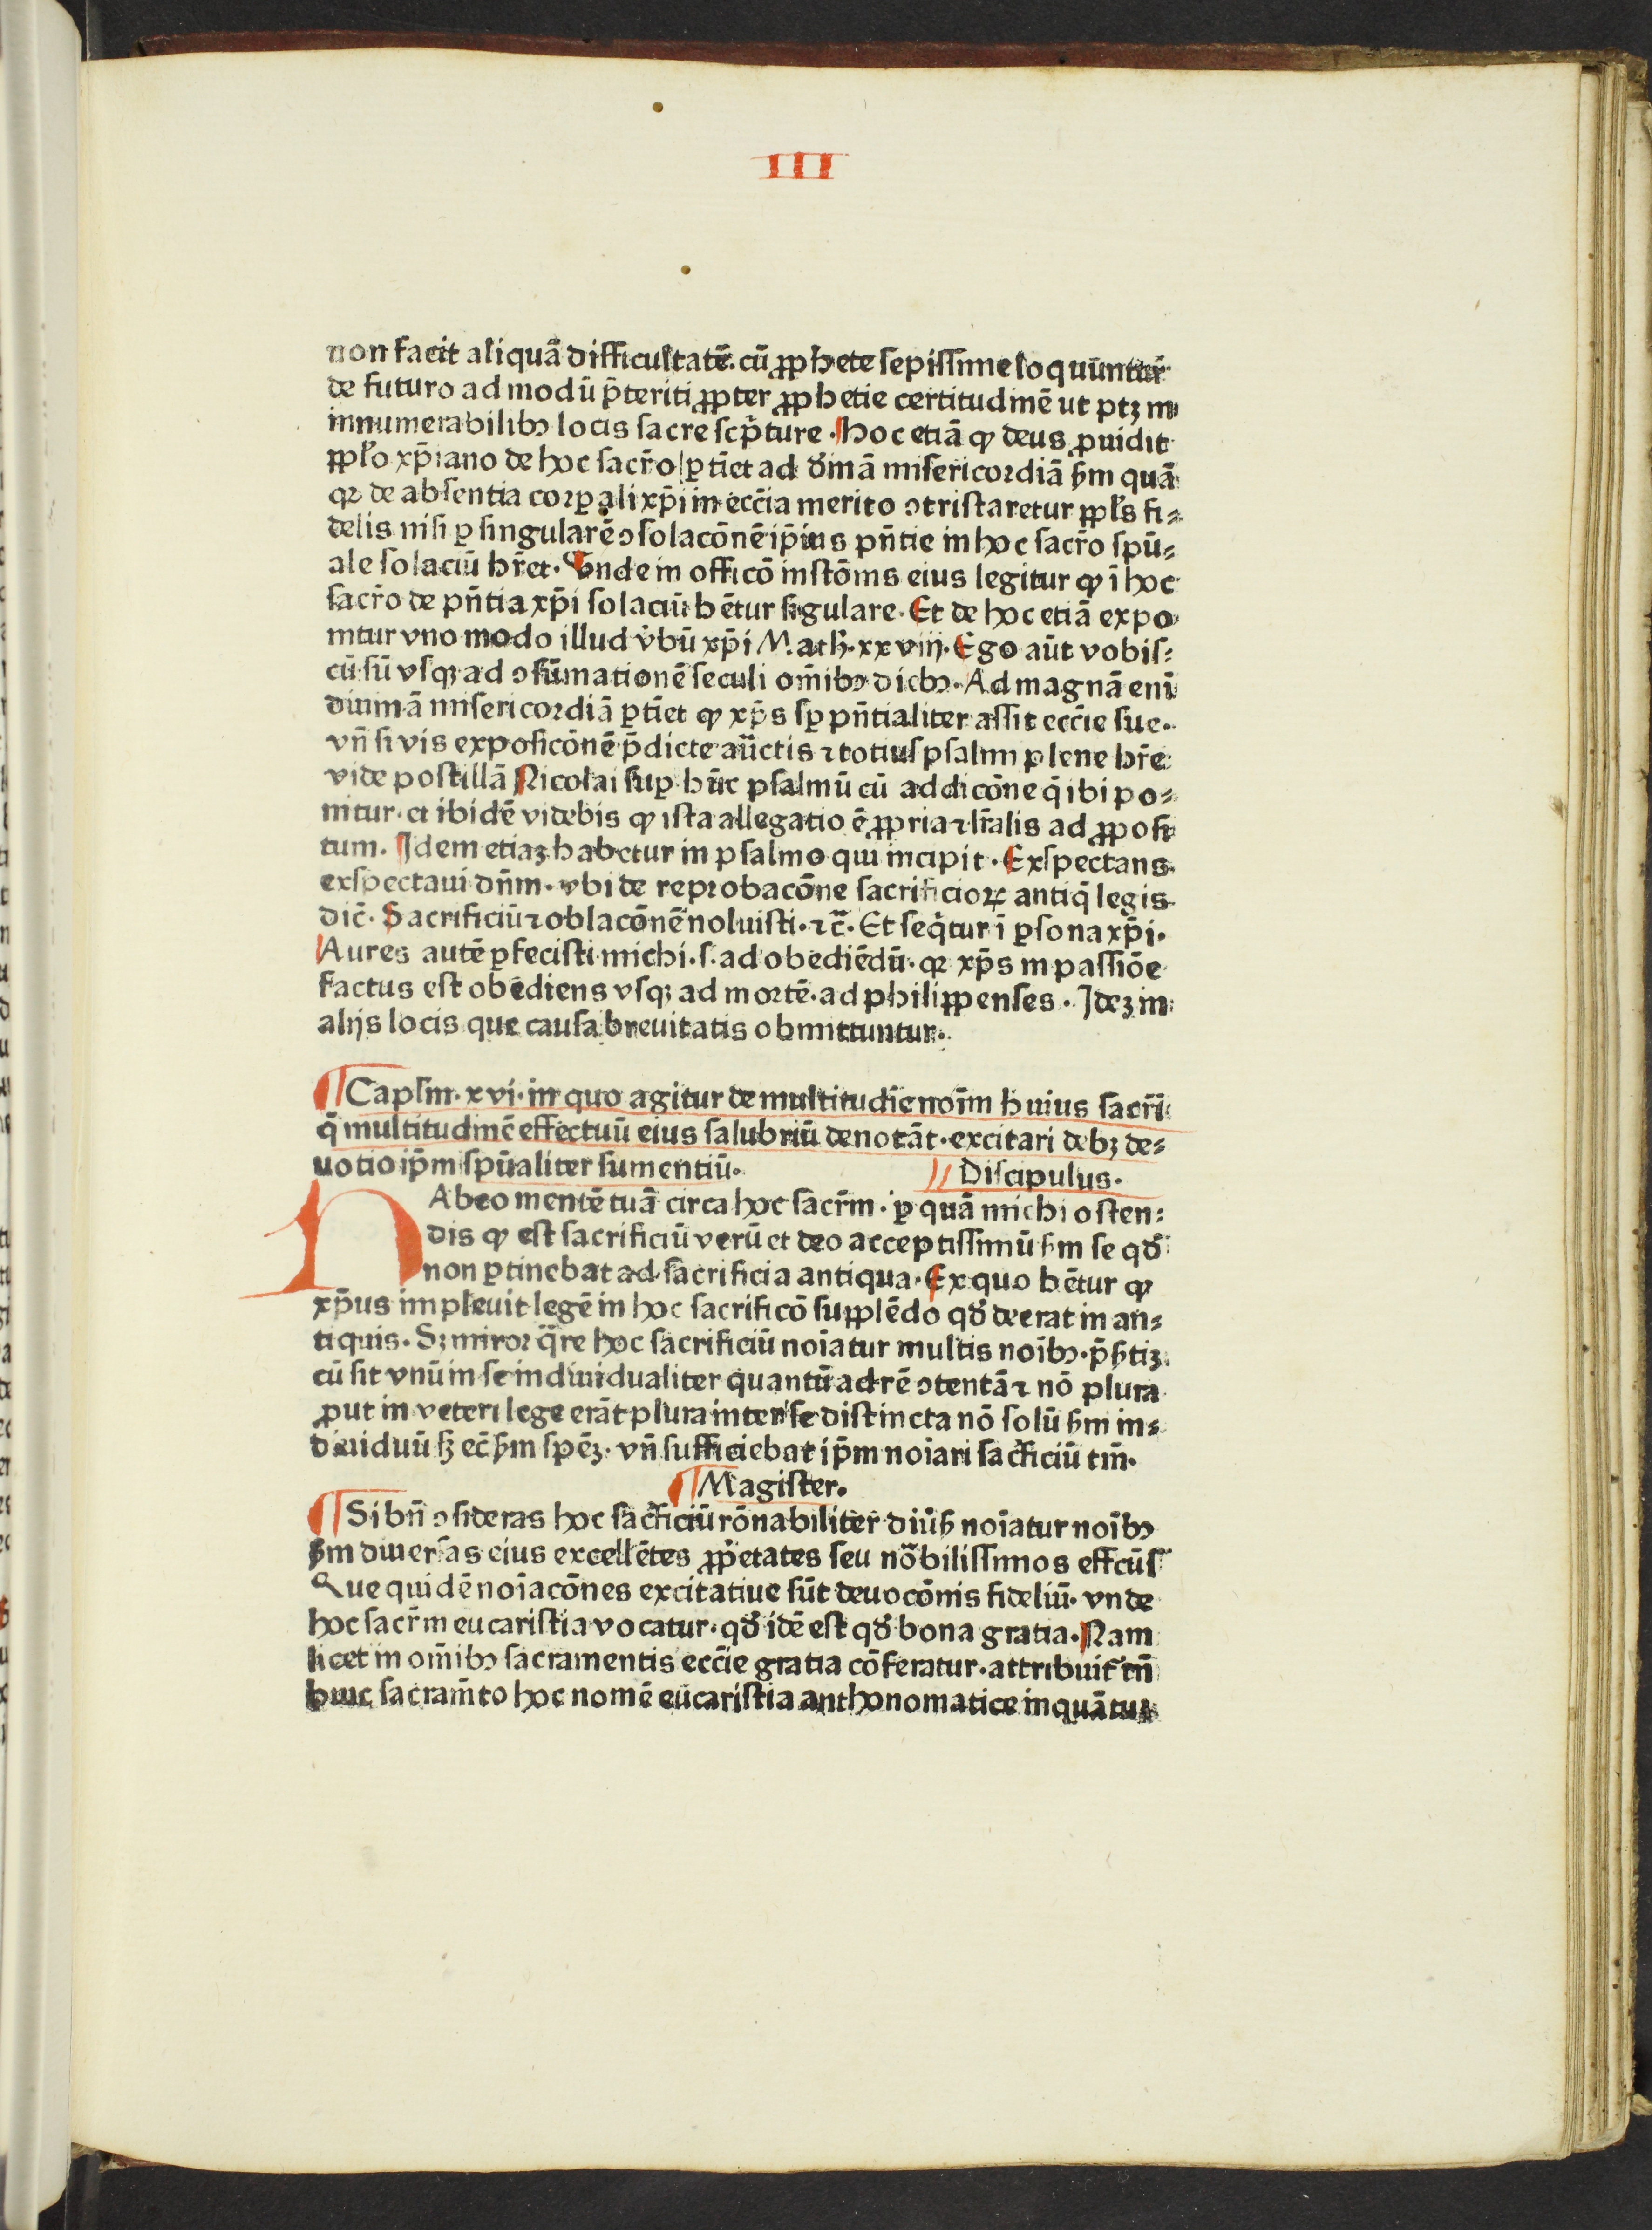 III
non facit aliquā difficultatē. cū ꝓphete sepissime loquūntur̄
de futuro ad modū p̄teriti ꝓpter ꝓphetie certitudinē ut ptꝫ in
innumerabilibꝰ locis sacre scp̄ture. Hoc etiā ꝙ deus ꝓuidit
ppl̄o xp̄iano de hoc sacr̄o ꝑtīet ad diuinā misericordiā ẜm quā
qꝛ de absentia corꝑali xp̄i in ecc̄ia merito ꝯtristaretur ppl̄s fi⸗
delis nisi ꝑ singularē ꝯsolacōnē ip̄ius pn̄tie in hoc sacr̄o spū⸗
ale solaciū hr̄et. Vnde in officō instōnis eius legitur ꝙ ī hoc
sacr̄o de pn̄tia xp̄i solaciū hētur sīgulare. Et de hoc etiā expo
nitur vno modo illud v̄bū xp̄i Math. xxviij. Ego aūt vobis⸗
cū sū vsqꝫ ad ꝯsūmationē seculi om̄ibꝰ diebꝰ. Ad magnā enī
diuinā misericordiā ꝑtīet ꝙ xp̄s sꝑ pn̄tialiter assit ecc̄ie sue.
vn̄ si vis exposicōnē p̄dicte auc̄tis ⁊ totius psalmi plene hr̄e
vide postillā Nicolai suꝑ hūc psalmū cū addicōne q̄ ibi po⸗
nitur. et ibidē videbis ꝙ ista allegatio ē ꝓpria ⁊ lr̄alis ad ꝓposi
tum. Idem etiaꝫ habetur in psalmo qui incipit. Exspectans
exspectaui dn̄m. vbi de reprobacōne sacrificioꝝ antiq̄ legis
dic̄. Sacrificiū ⁊ oblacōnē noluisti. ⁊c̄. Et seq̄tur ī ꝑsona xp̄i.
Aures autē ꝑfecisti michi. s. ad obediēdū. qꝛ xp̄s in passiōe
factus est obēdiens vsqꝫ ad mortē. ad philippenses. Ideꝫ in
alijs locis que causa breuitatis obmittuntur.
¶ Caplm̄. xvi. in quo agitur de multitudīe noīm huius sacr̄i
q̄ multitudinē effectuū eius salubriū denotāt. excitari debꝫ de⸗
uotio ip̄m spūaliter sumentiū. // Discipulus.
HAbeo mentē tuā circa hoc sacr̄m. ꝑ quā michi osten⸗
dis ꝙ est sacrificiū verū et deo acceptissimū ẜm se qd̄
non ꝑtinebat ad sacrificia antiqua. Ex quo hētur ꝙ
xp̄us impleuit legē in hoc sacrificō supplēdo qd̄ deerat in an⸗
tiquis. Sꝫ miror q̄re hoc sacrificiū noīatur multis noībꝰ. p̄ẜtiꝫ
cū sit vnū in se indiuidualiter quantū ad rē ꝯtentā ⁊ nō plura
ꝓut in veteri lege erāt plura inter se distincta nō solū ẜm in⸗
diuiduū sꝫ ec̄ ẜm spēꝫ. vn̄ sufficiebat ip̄m noīari sac̄ficiū tm̄.
¶ Magister.
¶ Si bn̄ ꝯsideras hoc sac̄ficiū rōnabiliter diūẜ noīatur noībꝰ
ẜm diuersas eius excellētes ꝓp̄etates seu nōbilissimos effcūs
Que quidē noīacōnes excitatiue sūt deuocōnis fideliū. vnde
hoc sacr̄m eucaristia vocatur. qd̄ idē est qd̄ bona gratia. Nam
licet in om̄ibꝰ sacramentis ecc̄ie gratia cōferatur. attribuit̄ tn̄
huic sacram̄to hoc nomē eucaristia anthonomatice inquātum